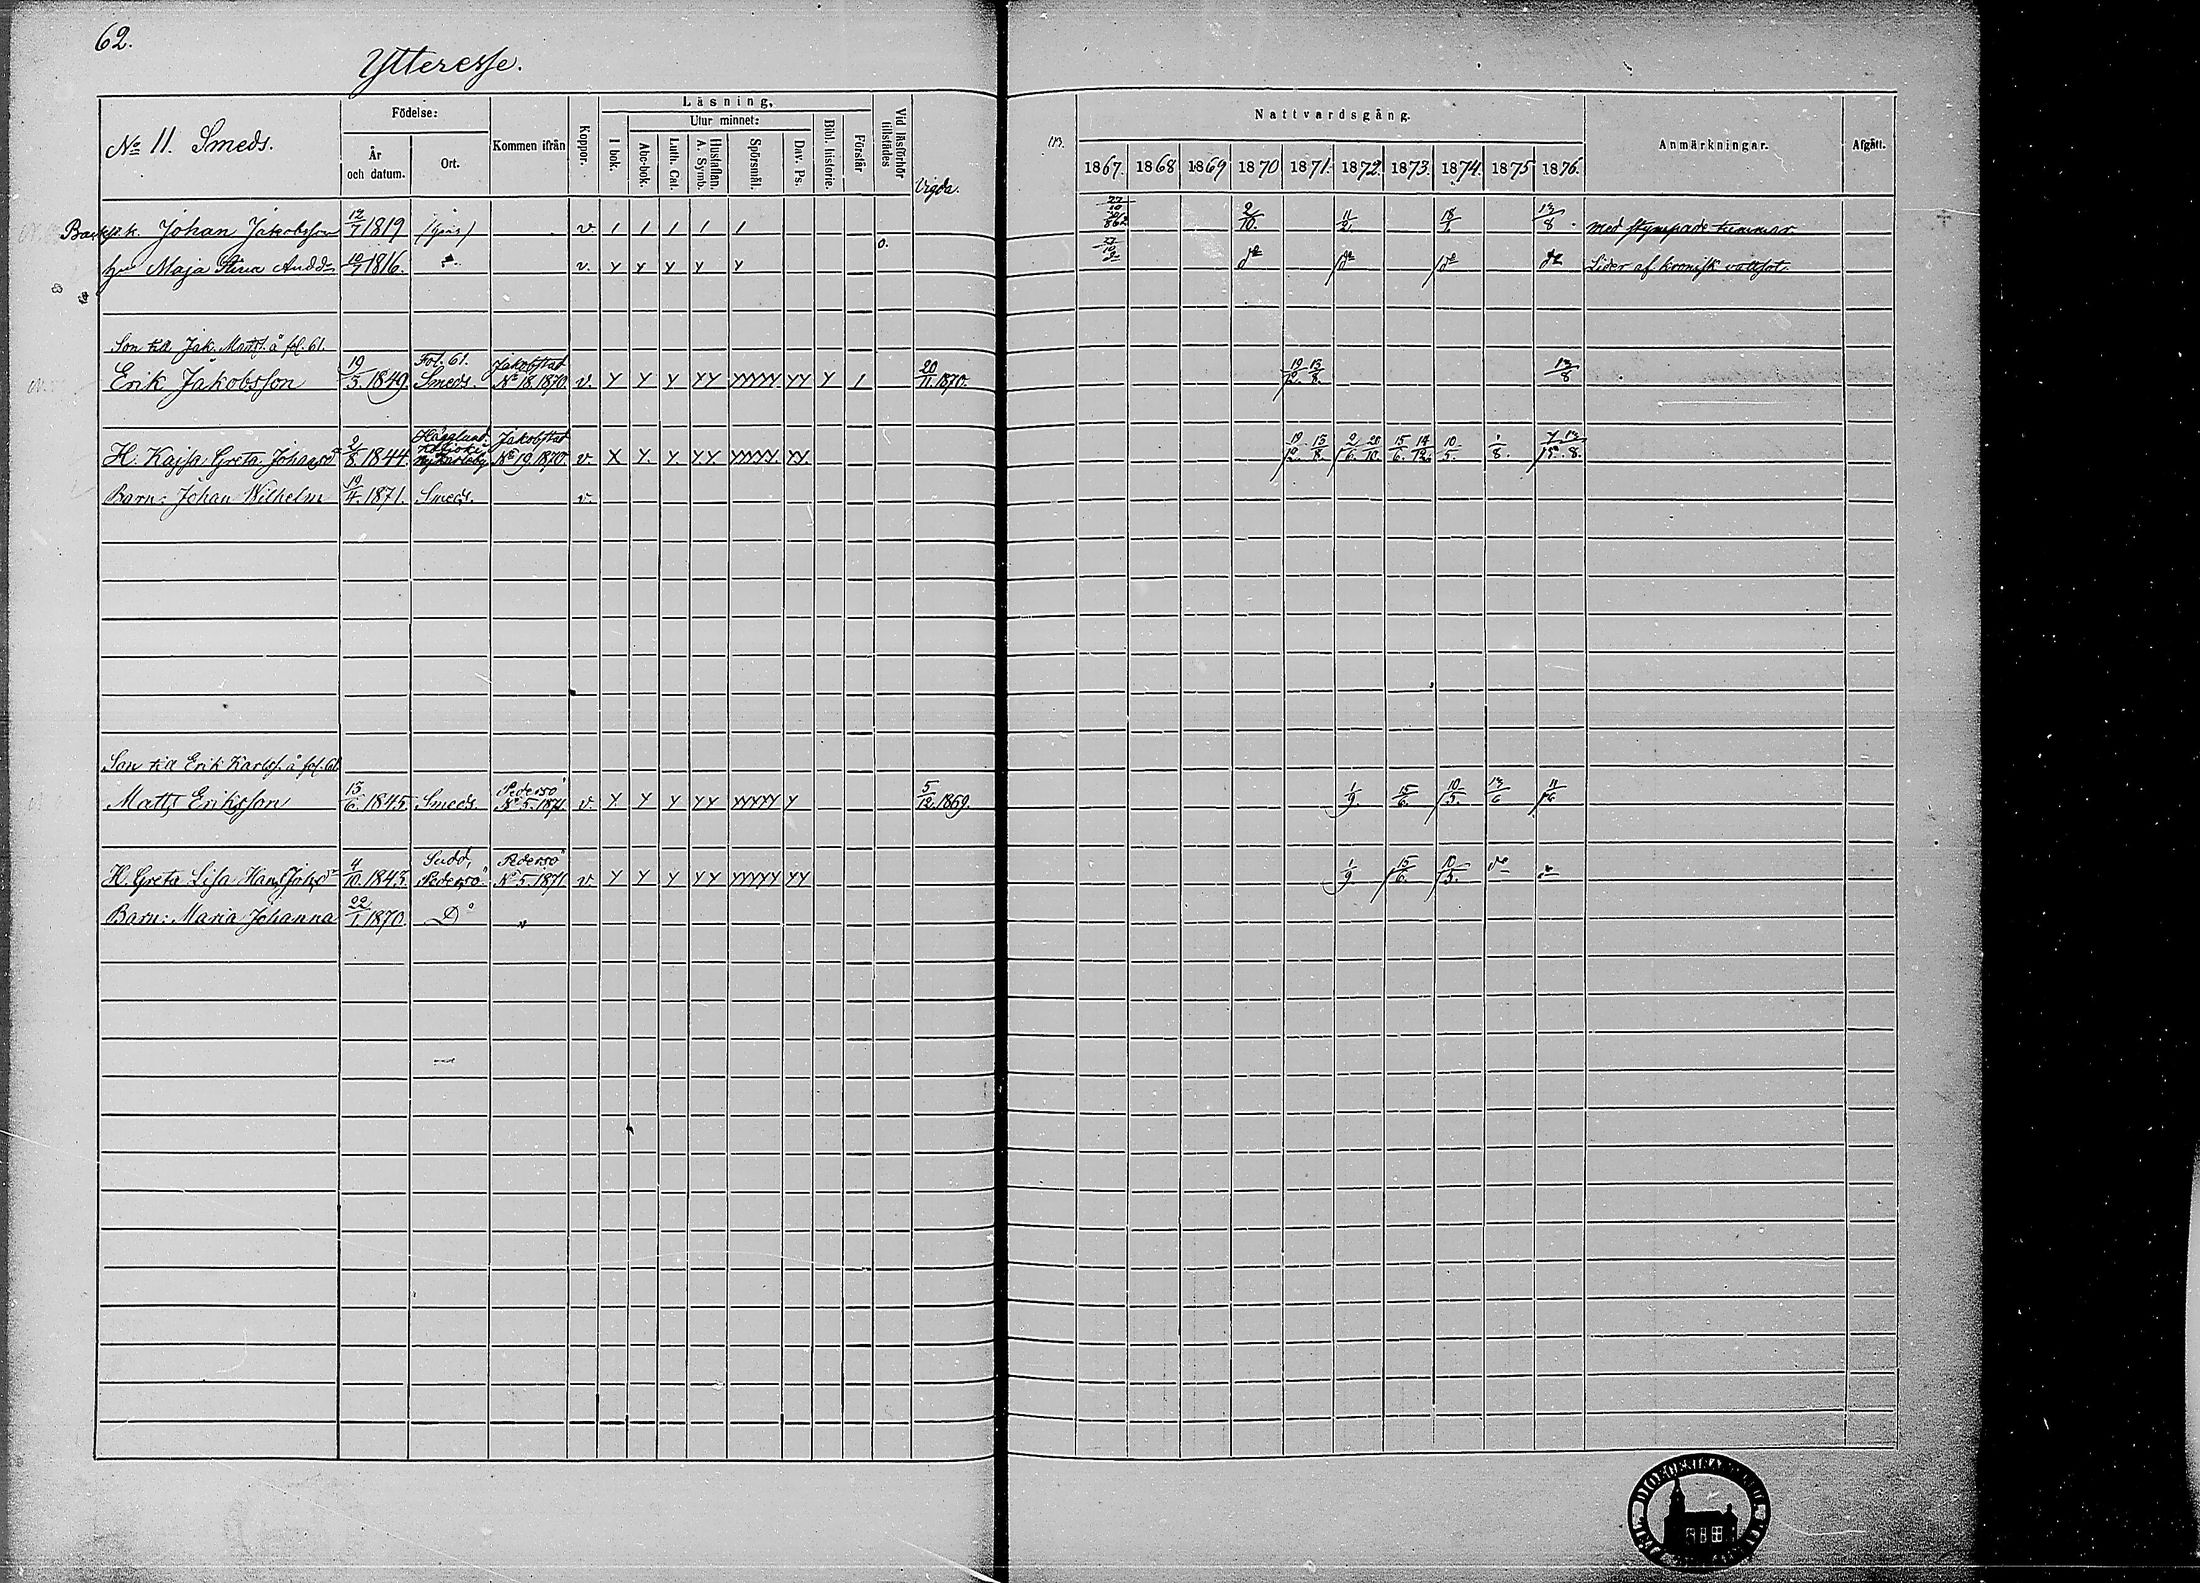 62.
Ytteresse.
No 11. Smeds.
Födelse:
År och datum.
Ort.
Kommen ifrån
Koppor.
Läsning,
I bok.
Utur minnet:
Abc-bok.
Luth. Cat.
Hustaflan. A. Symb.
Spörsmål.
Dav. Ps.
Bibl. historie.
Förstår
Vid läsförhör tillstädes
Vigda.
Nattvardsgång.
1867. 1868 1869 1870 1871. 1872. 1873. 1874. 1875 1876.
Anmärkningar.
Afgått.
Johan Jakobsson 12/7 1819 v. / / / / / 2/10. 11/2. 18/1 13/8 med stympade tummar
Maja Stina Andd:r 10/7 1816. v. y y y y y o. do do do do Lider af kronisk vallsot.
Son t.a Jak. Matts. å fol. 61.
Erik Jakobsson 19/3 1849 Fol. 61. Smeds. Jakobstad No 18. 1870. v. y y y yy yyyyy yy y / 20/11. 1870. 19/12. 13/8. 13/8
H. Kajsa Greta Johansd:r 2/8. 1844. Hägglund Nykarleby Jakobstad No 19. 1870. v. x y. y. y.y. yyyyy. yy. 19/12. 13/8. 2/6. 20/10. 15/6. 14/12. 10/5. 1/8.
Barn: Johan Wilhelm 19/4. 1871. Smeds. v.
Son t.a Erik Karlss. å fol. 61
Matts Eriksson 15/6. 1845 Smeds. Pedersö No 5. 1871. v. y y y yy yyyyy y 5/12. 1869. 1/9. 15/6. 10/5. 13/6 11/6.
H. Greta Lisa Hans Johsd:r 4/10. 1843 Sudd, Pedersö. Pedersö No 5. 1871 v. y y y yy yyyyy yy 1/9. 15/6. 10/5. do
Barn: Maria Johanna 22/1. 1870. Do "